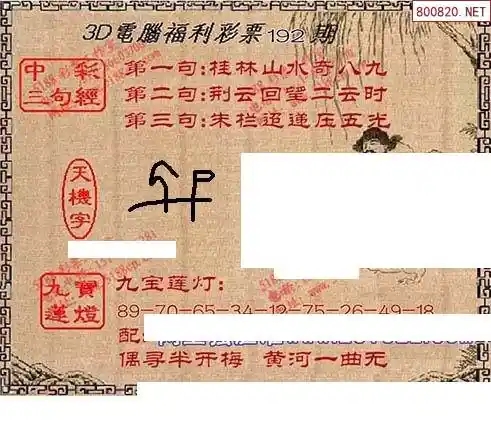 800820.NET
3D電腦福利彩票192期
中彩三句經
第一句:桂林山水奇八九
第二句:荆云回望二云时
第三句:朱栏迢递压五光
天機字
九寶蓮燈
九宝莲灯:
89-70-65-34-12-75-26-49-18
配:
偶寻半开梅 黄河一曲无